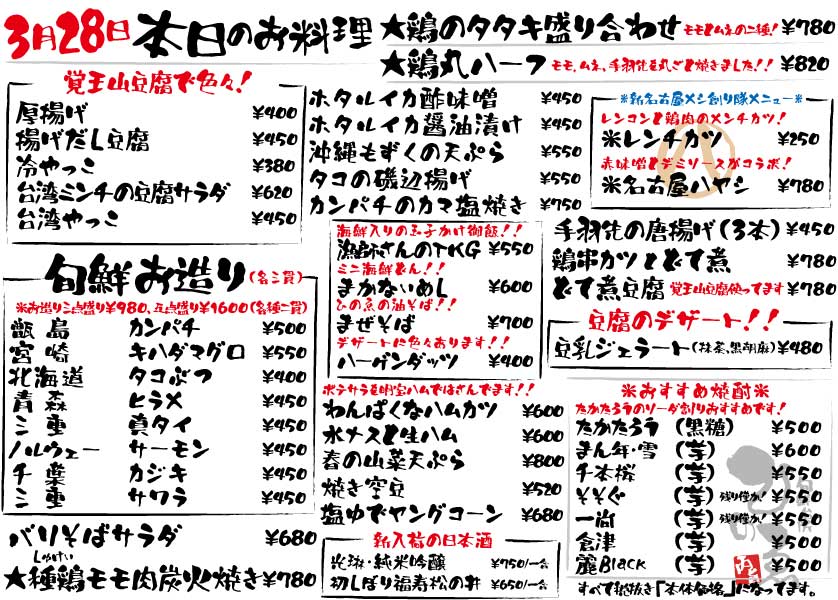 3月28日 本日のお料理
★鶏のタタキ盛り合わせ モモとムネの二種! ¥780
★鶏丸ハーフ モモ、ムネ、手羽先を丸ごと焼きました!! ¥820
覚王山豆腐で色々!
厚揚げ ¥400
揚げだし豆腐 ¥450
冷やっこ ¥380
台湾ミンチの豆腐サラダ ¥620
台湾やっこ ¥450
ホタルイカ酢味噌 ¥450
ホタルイカ醤油漬け ¥450
沖縄もずくの天ぷら ¥550
タコの磯辺揚げ ¥550
カンパチのカマ塩焼き ¥750
※新名古屋メシ創り隊メニュー※
レンコンと鶏肉のメンチカツ!
米レンチカツ ¥250
赤味噌とデミソースがコラボ!
米名古屋ハヤシ ¥780
手羽先の唐揚げ(3本) ¥450
鶏串カツとどて煮 ¥780
どて煮豆腐 覚王山豆腐使ってます ¥780
旬鮮お造り(各三貫)
※お造り三点盛り¥980、五点盛り¥1600(各種二貫)
甑島 カンパチ ¥500
宮崎 キハダマグロ ¥550
北海道 タコぶつ ¥400
青森 ヒラメ ¥450
三重 真タイ ¥450
ノルウェー サーモン ¥450
千葉 カジキ ¥450
三重 サワラ ¥450
バリそばサラダ ¥680
しゅけい
★種鶏モモ肉炭火焼き ¥780
海鮮入りの玉子かけ御飯!!
漁師さんのTKG ¥550
ミニ海鮮どん!!
まかないめし ¥600
ひの魚の油そば!!
まぜそば ¥700
デザートに色々あります!!
ハーゲンダッツ ¥400
ポテサラを明宝ハムではさんでます!!
わんぱくなハムカツ ¥600
水ナスと生ハム ¥600
春の山菜天ぷら ¥800
焼き空豆 ¥520
塩ゆでヤングコーン ¥680
新入荷の日本酒
光琳・純米吟醸 ¥750/一合
初しぼり福寿松の井 ¥650/一合
豆腐のデザート!!
豆乳ジェラート(抹茶、黒胡麻) ¥480
※おすすめ焼酎※
たかたろうのソーダ割りおすすめです!
たかたろう (黒糖) ¥500
まん年・雪 (芋) ¥600
千本桜 (芋) ¥550
そそぐ (芋) 残り僅か! ¥550
一尚 (芋) 残り僅か! ¥550
倉津 (芋) ¥500
麗Black (芋) ¥500
すべて税抜き「本体価格」になってます。